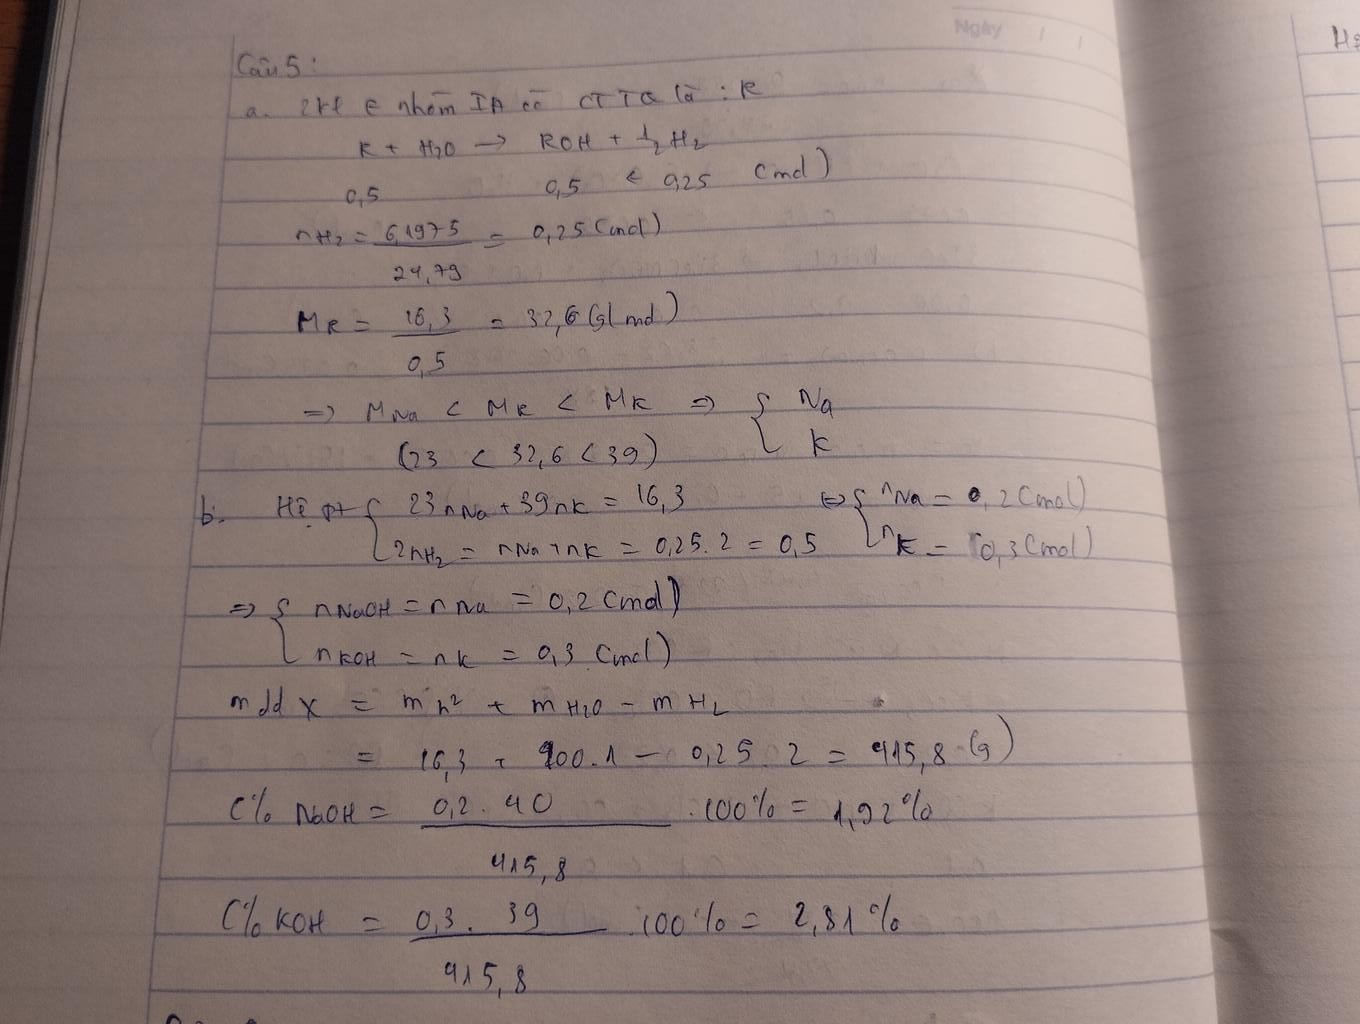 Ngày / /
Câu 5:
a. 2kl ∈ nhóm IA có CTTQ là : R
R + H2O → ROH + 1/2 H2
0,5 0,5 ← 0,25 (mol)
nH2 = 6,1975/24,79 = 0,25 (mol)
MR = 16,3/0,5 = 32,6 (g/mol)
=> MNa < MR < MK => { Na
(23 < 32,6 < 39) K
b. Hệ pt { 23nNa + 39nK = 16,3 <=> { nNa = 0,2 (mol)
2nH2 = nNa + nK = 0,25.2 = 0,5 nK = 0,3 (mol)
=> { nNaOH = nNa = 0,2 (mol)
nKOH = nK = 0,3 (mol)
mdd X = m h² + mH2O - mH2
= 16,3 + 400.1 - 0,25.2 = 415,8 (g)
C% NaOH = 0,2.40/415,8 .100% = 1,92%
C% KOH = 0,3.39/415,8 .100% = 2,81%